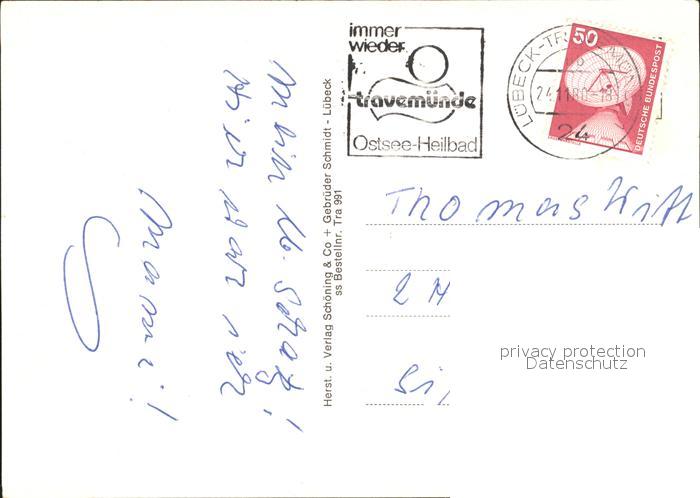 immer
wieder
travemünde
Ostsee-Heilbad
LÜBECK-TR
24.11.80-18
24
50
DEUTSCHE BUNDESPOST
Mein lb. Schatz!
Wir war
Mami!
Herst. u. Verlag Schöning & Co + Gebrüder Schmidt - Lübeck
ss Bestellnr. Tra 991
Thomas Witt
2 H
Si
privacy protection
Datenschutz